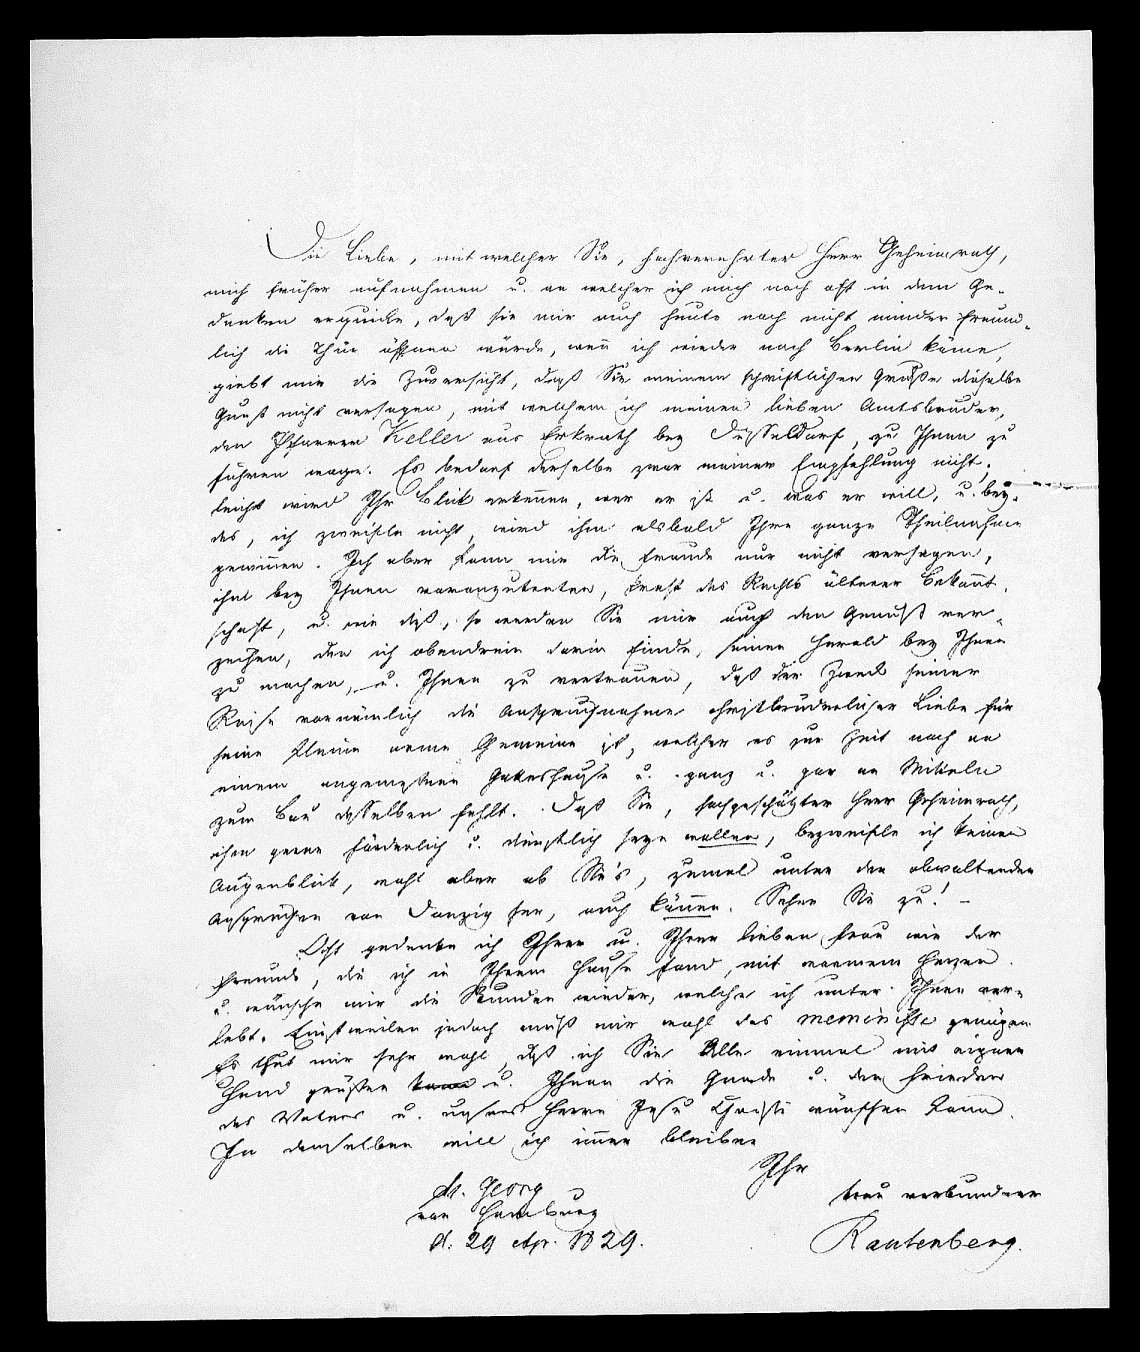 Die Liebe, mit welcher Sie, hochverehrter Herr Geheimrath,
mich früher aufnahmen u. an welcher ich mich noch oft in dem Ge-
danken erquicke, daß sie mir auch heute noch nicht minder freund-
lich die Thür öffnen würde, weñ ich wieder nach Berlin käme,
giebt mir die Zuversicht, daß Sie meinem schriftlichen Gruße dieselbe
Gunst nicht versagen, mit welchem ich meinen lieben Amtsbruder,
den Pfarrer Keller aus Erkrath bey Düsseldorf, zu Ihnen zu
führen wage. Es bedarf derselbe zwar meiner Empfehlung nicht,
leicht wird Ihr Blick erkeñen, wer er ist u. was er will, u. bey-
des, ich zweifle nicht, wird ihm alsbald Ihre ganze Theilnahme
gewiñen. Ich aber kann mir die Freude nur nicht versagen,
ihn bey Ihnen voranzutreten, kraft des Rechts älterer Bekañt-
schaft, u. wie diß, so werden Sie mir auch den Genuß ver-
zeihen, den ich obendrein darin finde, seinen Herold bey Ihnen
zu machen, u. Ihnen zu vertrauen, daß der Zweck seiner
Reise vornämlich die Anspruchnahme christbrüderlicher Liebe für
seine kleine arme Gemeine ist, welcher es zur Zeit noch an
einem angemeßnen Gotteshause u. ganz u. gar an Mitteln
zum Bau desselben fehlt. Daß Sie, hochgeschätzter Herr Geheimrath,
ihm gerne förderlich u. dienstlich seyn wollen, bezweifle ich keinen
Augenblick, wohl aber ob Sie's, zumal unter den obwaltenden
Ansprüchen von Danzig her, auch köñen. Sehen Sie zu! –
Oft gedenke ich Ihrer u. Ihrer lieben Frau wie der
Freunde, die ich in Ihrem Hause fand, mit warmem Herzen
u. wünsche mir die Stunden wieder, welche ich unter Ihnen ver-
lebt. Einstweilen jedoch muß mir wohl das meminisse genügen.
Es thut mir sehr wohl, daß ich Sie Alle einmal mit eigner
Hand grüßen u. Ihnen die Gnade u. den Frieden
des Vaters u. unsers Herrn Jesu Christi wünschen kann.
In demselben will ich iṁer bleiben
Ihr
St. Georg
treu verbundner
vor Hamburg
d. 29 Apr. 1829.
Rautenberg.